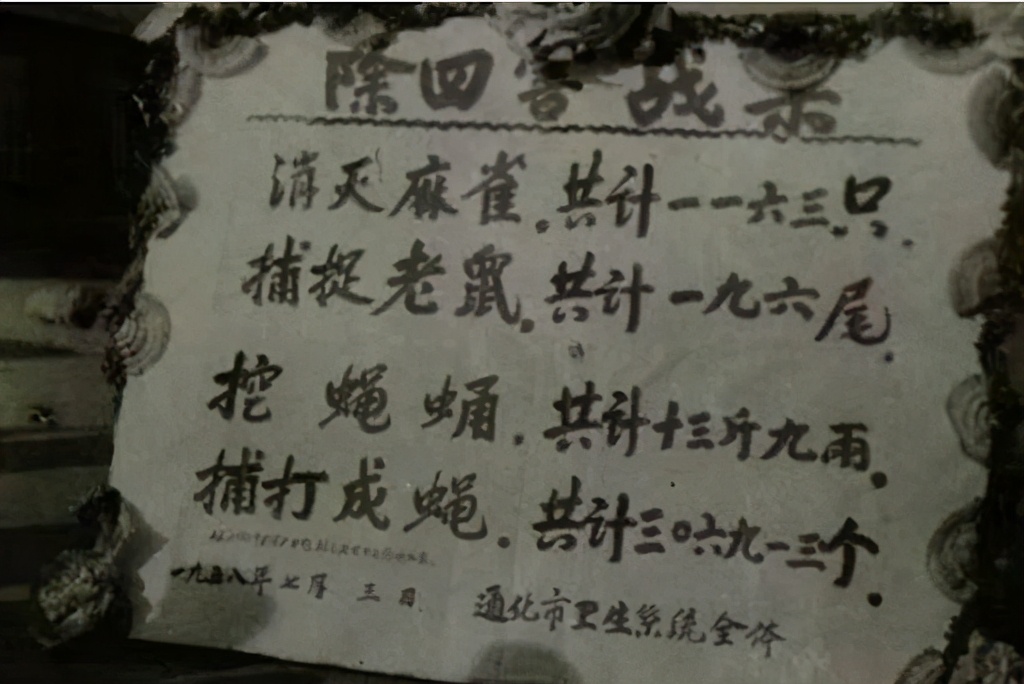 除四害战果
消灭麻雀.共计一一六三只.
捕捉老鼠.共计一九六尾.
挖蝇蛹.共计十三斤九雨.
捕打成蝇.共计三〇六九一三个.
一九五八年七月三日
通化市卫生系统全体